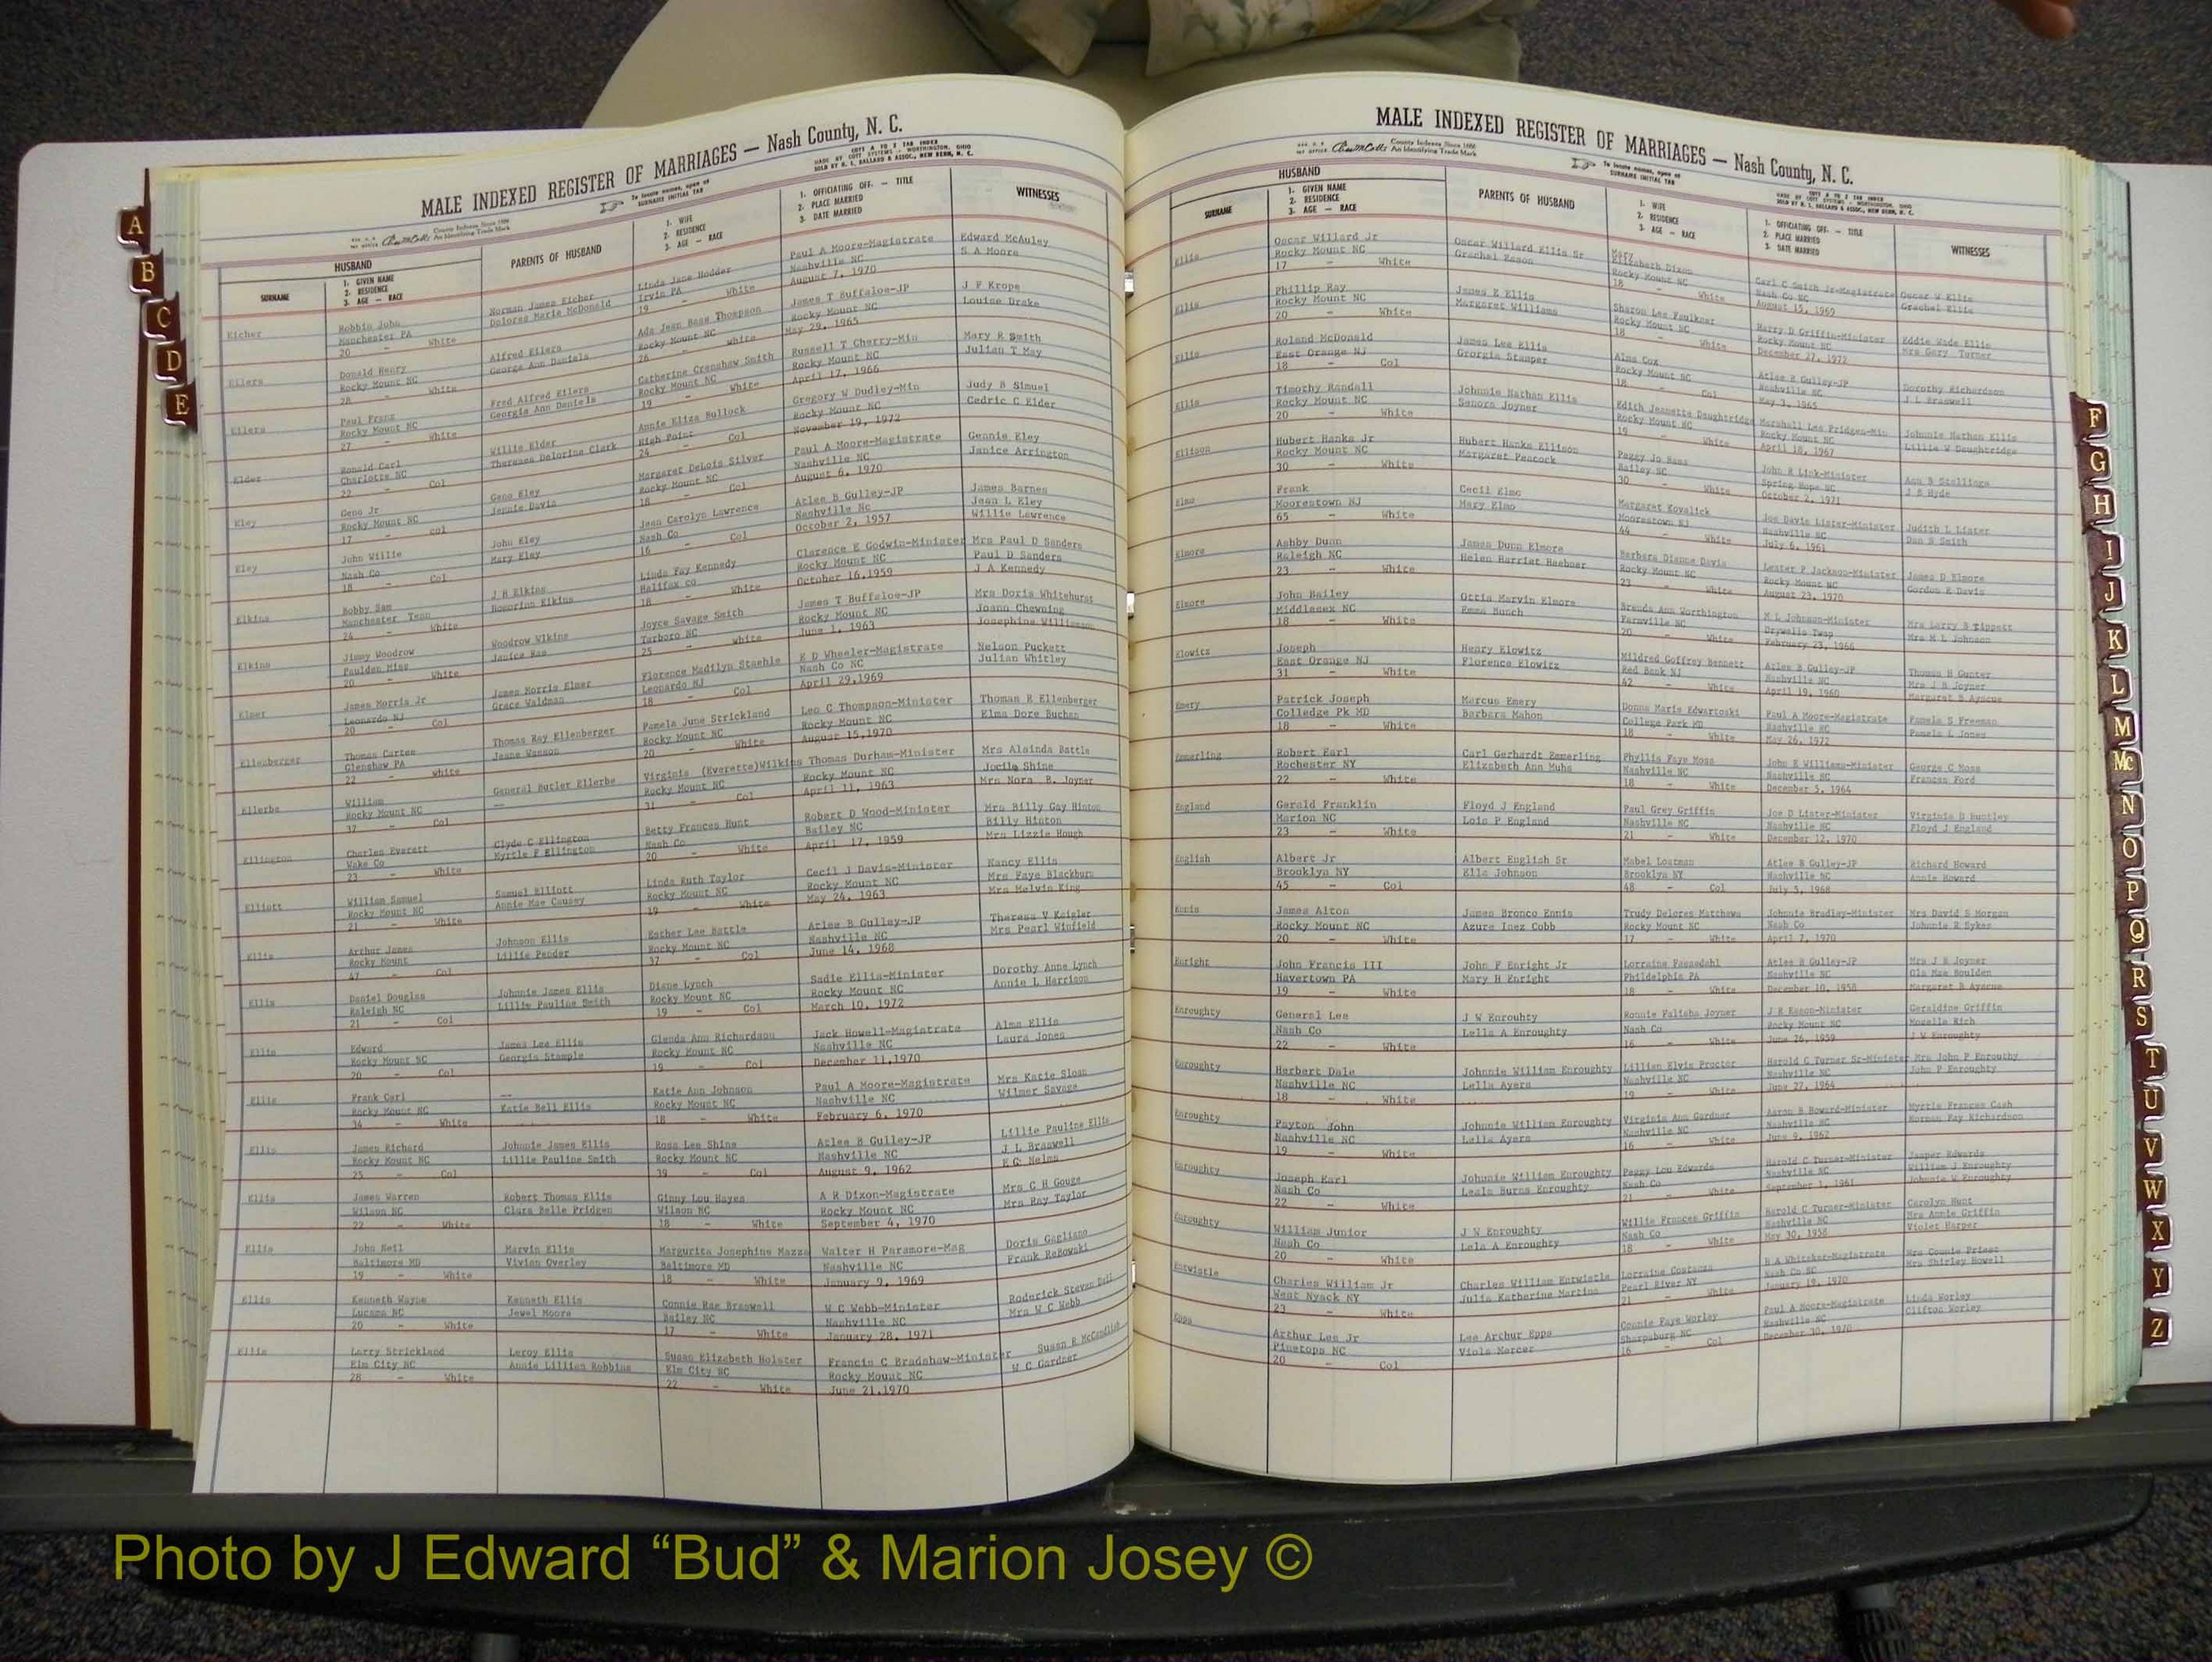 MALE INDEXED REGISTER OF MARRIAGES — Nash County, N. C.
County Indexes Since 1888
An Identifying Trade Mark
To locate names, open at
SURNAME INITIAL TAB
COTT A TO Z TAB INDEX
MADE BY COTT SYSTEMS - WORTHINGTON, OHIO
SOLD BY H. L. BALLARD & ASSOC., NEW BERN, N. C.
SURNAME
HUSBAND
1. GIVEN NAME
2. RESIDENCE
3. AGE — RACE
PARENTS OF HUSBAND
1. WIFE
2. RESIDENCE
3. AGE — RACE
1. OFFICIATING OFF. — TITLE
2. PLACE MARRIED
3. DATE MARRIED
WITNESSES
Eicher Robbin John Norman James Eicher Linda Jane Hodder Paul A Moore-Magistrate Edward McAuley
Manchester PA Dolores Marie McDonald Irvin PA Nashville NC S A Moore
20 - White 19 - White August 7, 1970
Eilers Donald Henry Alfred Eilers Ada Jean Bass Thompson James T Buffaloe-JP J F Krope
Rocky Mount NC George Ann Daniels Rocky Mount NC Rocky Mount NC Louise Drake
28 - White 26 - white May 29, 1965
Eilers Paul Franz Fred Alfred Eilers Catherine Crenshaw Smith Russell T Cherry-Min Mary R Smith
Rocky Mount NC Georgia Ann Daniels Rocky Mount NC Rocky Mount NC Julian T May
27 - White 19 - White April 17, 1966
Elder Ronald Carl Willie Elder Annie Eliza Bullock Gregory W Dudley-Min Judy B Simuel
Charlotte NC Theressa Delorine Clark High Point Rocky Mount NC Cedric C Elder
22 - Col 24 - Col November 19, 1972
Eley Geno Jr Geno Eley Margaret DeLois Silver Paul A Moore-Magistrate Gennie Eley
Rocky Mount NC Jennie Davis Rocky Mount NC Nashville NC Janice Arrington
17 - col 18 - Col August 6, 1970
Eley John Willie John Eley Jean Carolyn Lawrence Atlee B Gulley-JP James Barnes
Nash Co Mary Eley Nash Co Nashville Nc Jean L Eley
18 - Col 16 - Col October 2, 1957 Willie Lawrence
Elkins Bobby Sam J H Elkins Linda Fay Kennedy Clarence E Godwin-Minister Mrs Paul D Sanders
Manchester Tenn Elkins Halifax co Rocky Mount NC Paul D Sanders
24 - White 18 - White October 16,1959 J A Kennedy
Elkins Jimmy Woodrow Woodrow Wlkins Joyce Savage Smith James T Buffaloe-JP Mrs Doris Whitehurst
Paulden Miss Janice Rae Tarboro NC Rocky Mount NC Joann Chewning
20 - White 25 - white June 1, 1963 Josephine Williamson
Elmer James Morris Jr James Morris Elmer Florence Madilyn Staehle E D Wheeler-Magistrate Nelson Puckett
Leonardo NJ Grace Waldman Leonardo NJ Nash Co NC Julian Whitley
20 - Col 18 - Col April 29,1969
Ellenberger Thomas Carter Thomas Ray Ellenberger Pamela June Strickland Leo C Thompson-Minister Thomas R Ellenberger
Glenshaw PA Jeane Wasson Rocky Mount NC Rocky Mount NC Elma Dore Buchan
22 - white 20 - White August 15,1970
Ellerbe William General Butler Ellerbe Virginia (Everette)Wilkins Thomas Durham-Minister Mrs Alainda Battle
Rocky Mount NC -- Rocky Mount NC Rocky Mount NC Jocile Shine
37 - Col 31 - Col April 11, 1963 Mrs Nora B. Joyner
Ellington Charles Everett Clyde C Ellington Betty Frances Hunt Robert D Wood-Minister Mrs Billy Gay Hinton
Wake Co Myrtle F Ellington Nash Co Bailey NC Billy Hinton
23 - White 20 - White April 17, 1959 Mrs Lizzie Hough
Elliott William Samuel Samuel Elliott Linda Ruth Taylor Cecil J Davis-Minister Nancy Ellis
Rocky Mount NC Annie Mae Causey Rocky Mount NC Rocky Mount NC Mrs Faye Blackburn
21 - White 19 - White May 24, 1963 Mrs Melvin King
Ellis Arthur James Johnson Ellis Esther Lee Battle Atlee B Gulley-JP Theresa V Keigler
Rocky Mount Lillie Pender Rocky Mount NC Nashville NC Mrs Pearl Winfield
47 - Col 37 - Col June 14, 1968
Ellis Daniel Douglas Johnnie James Ellis Diane Lynch Sadie Ellis-Minister Dorothy Anne Lynch
Raleigh NC Lillie Pauline Smith Rocky Mount NC Rocky Mount NC Annie L Harrison
21 - Col 19 - Col March 10, 1972
Ellis Edward James Lee Ellis Glenda Ann Richardson Jack Howell-Magistrate Alma Ellis
Rocky Mount NC Georgia Stample Rocky Mount NC Nashville NC Laura Jones
20 - Col 19 - Col December 11,1970
Ellis Frank Carl -- Katie Ann Johnson Paul A Moore-Magistrate Mrs Katie Sloan
Rocky Mount NC Katie Bell Ellis Rocky Mount NC Nashville NC Wilmer Savage
34 - White 18 - White February 6, 1970
Ellis James Richard Johnnie James Ellis Rosa Lee Shine Atlee B Gulley-JP Lillie Pauline Ellis
Rocky Mount NC Lillie Pauline Smith Rocky Mount NC Nashville NC J L Braswell
25 - Col 39 - Col August 9, 1962 F G Nelms
Ellis James Warren Robert Thomas Ellis Ginny Lou Hayes A R Dixon-Magistrate Mrs G H Gouge
Wilson NC Clara Belle Pridgen Wilson NC Rocky Mount NC Mrs Ray Taylor
22 - White 18 - White September 4, 1970
Ellis John Neil Marvin Ellis Margurita Josephine Mazza Walter H Paramore-Mag Doris Gagliano
Baltimore MD Vivian Overley Baltimore MD Nashville NC Frank ReBowski
19 - White 18 - White January 9, 1969
Ellis Kenneth Wayne Kenneth Ellis Connie Rae Braswell W C Webb-Minister Roderick Steven
Lucama NC Jewel Moore Bailey NC Nashville NC Mrs W C Webb
20 - White 17 - White January 28, 1971
Ellis Larry Strickland Leroy Ellis Susan Elizabeth Holster Francis C Bradshaw-Minister Susan E
Elm City NC Annie Lillian Robbins Elm City NC Rocky Mount NC W C Gardner
28 - White 22 - White June 21,1970
MALE INDEXED REGISTER OF MARRIAGES — Nash County, N. C.
County Indexes Since 1888
An Identifying Trade Mark
To locate names, open at
SURNAME INITIAL TAB
COTT A TO Z TAB INDEX
MADE BY COTT SYSTEMS - WORTHINGTON, OHIO
SOLD BY H. L. BALLARD & ASSOC., NEW BERN, N. C.
SURNAME
HUSBAND
1. GIVEN NAME
2. RESIDENCE
3. AGE — RACE
PARENTS OF HUSBAND
1. WIFE
2. RESIDENCE
3. AGE — RACE
1. OFFICIATING OFF. — TITLE
2. PLACE MARRIED
3. DATE MARRIED
WITNESSES
Ellis Oscar Willard Jr Oscar Willard Ellis Sr Mary Elizabeth Dixon Carl C Smith Jr-Magistrate Oscar W Ellis
Rocky Mount NC Grachel Eason Rocky Mount NC Nash Co NC Grachel Ellis
17 - White 18 - White August 15, 1969
Ellis Phillip Ray James E Ellis Sharon Lee Faulkner Harry D Griffin-Minister Eddie Wade Ellis
Rocky Mount NC Margaret Williams Rocky Mount NC Rocky Mount NC Mrs Gary Turner
20 - White 18 - White December 27, 1972
Ellis Roland McDonald James Lee Ellis Alma Cox Atlee B Gulley-JP Dorothy Richardson
East Orange NJ Georgia Stamper Rocky Mount NC Nashville NC J L Braswell
18 - Col 18 - Col May 3, 1965
Ellis Timothy Randall Johnnie Nathan Ellis Edith Jeanette Daughtridge Marshall Lee Pridgen-Min Johnnie Nathan Ellis
Rocky Mount NC Senora Joyner Rocky Mount NC Rocky Mount NC Lillie W Daughtridge
20 - White 19 - White April 18, 1967
Ellison Hubert Hanks Jr Hubert Hanks Ellison Peggy Jo Bass John R Link-Minister Ann B Stallings
Rocky Mount NC Margaret Peacock Bailey NC Spring Hope NC J B Hyde
30 - White 30 - White October 2, 1971
Elmo Frank Cecil Elmo Margaret Kovalick Joe Davis Lister-Minister Judith L Lister
Moorestown NJ Mary Elmo Moorestown NJ Nashville NC Dan S Smith
65 - White 44 - White July 6, 1961
Elmore Ashby Dunn James Dunn Elmore Barbara Dianne Davis Lester P Jackson-Minister James D Elmore
Raleigh NC Helen Harriet Haebner Rocky Mount NC Rocky Mount NC Gordon E Davis
23 - White 23 - White August 23, 1970
Elmore John Bailey Ottis Marvin Elmore Brenda Ann Worthington M L Johnson-Minister Mrs Larry B Tippett
Middlesex NC Emma Bunch Farmville NC Drywells Twsp Mrs M L Johnson
18 - White 20 - White February 23, 1966
Elowitz Joseph Henry Elowitz Mildred Goffrey Bennett Atlee B Gulley-JP Thomas H Gunter
East Orange NJ Florence Elowitz Red Bank NJ Nashville NC Mrs J B Joyner
31 - White 42 - White April 19, 1960 Margaret B Aycscue
Emery Patrick Joseph Marcus Emery Donna Marie Edwartoski Paul A Moore-Magistrate Pamela S Freeman
Colledge Pk MD Barbara Mahon College Park MD Nashville NC Pamela L Jones
18 - White 18 - White May 26, 1972
Emmerling Robert Earl Carl Gerhardt Emmerling Phyllis Faye Moss John E Williams-Minister George C Moss
Rochester NY Elizabeth Ann Muhs Nashville NC Nashville NC Frances Ford
22 - White 18 - White December 5, 1964
England Gerald Franklin Floyd J England Paul Grey Griffin Joe D Lister-Minister Virginia D Huntley
Marion NC Lois P England Nashville NC Nashville NC Floyd J England
23 - White 21 - White December 12, 1970
English Albert Jr Albert English Sr Mabel Loatman Atlee B Gulley-JP Richard Howard
Brooklyn NY Ella Johnson Brooklyn NY Nashville NC Annie Howard
45 - Col 48 - Col July 5, 1968
Ennis James Alton James Bronco Ennis Trudy Delores Matthews Johnnie Bradley-Minister Mrs David S Morgan
Rocky Mount NC Azure Inez Cobb Rocky Mount NC Nash Co Johnnie R Sykes
20 - White 17 - White April 7, 1970
Enright John Francis III John F Enright Jr Lorraine Passedahl Atlee B Gulley-JP Mrs J B Joyner
Havertown PA Mary H Enright Philadelphia PA Nashville NC Ola Mae Boulden
19 - White 18 - White December 10, 1958 Margaret B Aycscue
Enroughty General Lee J W Enrouhty Ronnie Falisha Joyner J R Eason-Minister Geraldine Griffin
Nash Co Lella A Enroughty Nash Co Rocky Mount NC Mozelle Rich
22 - White 16 - White June 26, 1959 J W Enroughty
Enroughty Herbert Dale Johnnie William Enroughty Lillian Elvis Proctor Harold C Turner Sr-Minister Mrs John P Enrouthy
Nashville NC Lella Ayers Nashville NC Nashville NC John P Enroughty
18 - White 19 - White June 27, 1964
Enroughty Payton John Johnnie Willian Enroughty Virginia Ann Gardner Aaron B Howard-Minister Myrtle Frances Cash
Nashville NC Lella Ayers Nashville NC Nashville NC Norman Fay Richardson
19 - White 16 - White June 9, 1962
Enroughty Joseph Earl Johnnie William Enroughty Peggy Lou Edwards Harold C Turner-Minister Jasper Edwards
Nash Co Leala Burns Enroughty Nash Co Nashville NC William J Enroughty
22 - White 21 - White September 1, 1961 Johnnie W Enroughty
Enroughty William Junior J W Enroughty Willie Frances Griffin Harold C Turner-Minister Carolyn Hunt
Nash Co Lela A Enroughty Nash Co Nashville NC Mrs Annie Griffin
20 - White 18 - White May 30, 1958 Violet Harper
Entwistle Charles William Jr Charles William Entwistle Lorraine Costanza R A Whitaker-Magistrate Mrs Connie Priest
West Nyack NY Julia Katherine Martine Pearl River NY Nash Co NC Mrs Shirley Howell
23 - White 21 - White January 19, 1970
Epps Arthur Lee Jr Lee Arthur Epps Connie Faye Worley Paul A Moore-Magistrate Linda Worley
Pinetops NC Viola Mercer Sharpsburg NC Nashville NC Clifton Worley
20 - Col 16 - Col December 30, 1970
A
B
C
D
E
F
G
H
I
J
K
L
M
Mc
N
O
P
Q
R
S
T
U
V
W
X
Y
Z
Photo by J Edward “Bud” & Marion Josey ©